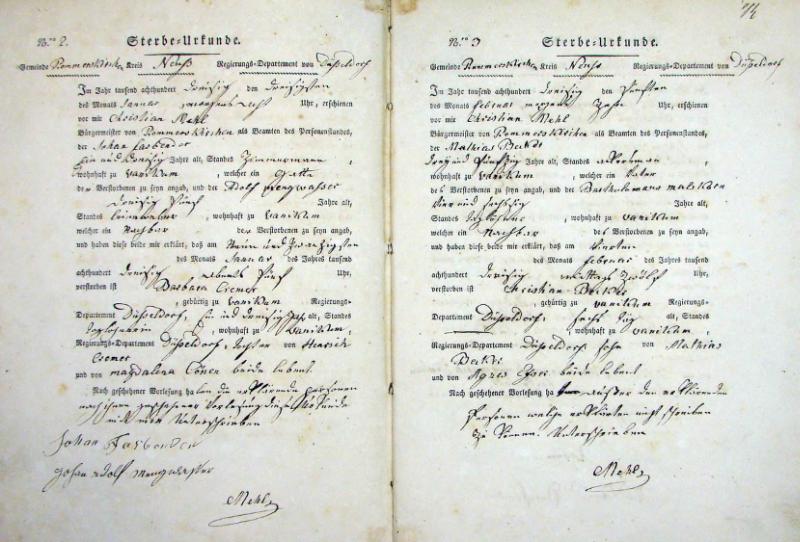 N.ro 2. Sterbe-Urkunde.
Gemeinde Rommerskirchen Kreis Neuß Regierungs-Departement von Düsseldorf
Im Jahr tausend achthundert dreißig den dreißigsten
des Monats Januar Uhr, erschienen
vor mir Christian Mehl
Bürgermeister von Rommerskirchen als Beamten des Personenstandes,
der Johan Farbender
Jahre alt, Standes Zimmermann,
wohnhaft zu Vanikum, welcher ein Gatte
der Verstorbenen zu seyn angab, und der Adolf Mengwasser
dreißig fünf Jahre alt,
Standes, wohnhaft zu Vanikum,
welcher ein Nachbar der Verstorbenen zu seyn angab,
und haben diese beide mir erklärt, daß am neun und zwanzigsten
des Monats Januar des Jahres tausend
achthundert dreißig abends fünf Uhr,
verstorben ist Barbara Cremer
, gebürtig zu Vanikum Regierungs-
Departement Düsseldorf, ein und dreißig Jahr alt, Standes
Taglöhnerin, wohnhaft zu Vanikum,
Regierungs-Departement Düsseldorf, Tochter von Henrich
Cremer
und von Magdalena Cönen beide lebend.
Nach geschehener Vorlesung haben die erklärende Personen
nach ihnen geschehener Vorlesung diese Urkunde
mit mir Unterschrieben
Johan Farbender
Johan Adolf Mengwasser
Mehl
N.ro 3 Sterbe-Urkunde.
Gemeinde Rommerskirchen Kreis Neuß Regierungs-Departement von Düsseldorf
Im Jahr tausend achthundert dreißig den fünften
des Monats Februar morgens zehn Uhr, erschienen
vor mir Christian Mehl
Bürgermeister von Rommerskirchen als Beamten des Personenstandes,
der Mathias
drey und fünfzig Jahre alt, Standes Ackersman,
wohnhaft zu Vanikum, welcher ein Vater
des Verstorbenen zu seyn angab, und der
vier und sechszig Jahre alt,
Standes Taglöhner, wohnhaft zu Vanikum,
welcher ein Nachbar des Verstorbenen zu seyn angab,
und haben diese beide mir erklärt, daß am vierten
des Monats Februar des Jahres tausend
achthundert dreißig mittags zwölf Uhr,
verstorben ist Christian
, gebürtig zu Vanikum Regierungs-
Departement Düsseldorf, sechs Tag alt, Standes
, wohnhaft zu Vanikum,
Regierungs-Departement Düsseldorf Sohn von Mathias
und von Agnes Esser beide lebend
Nach geschehener Vorlesung ha außer den erklärenden
Personen welche erklärten nicht schreiben
zu können. Unterschrieben
Mehl